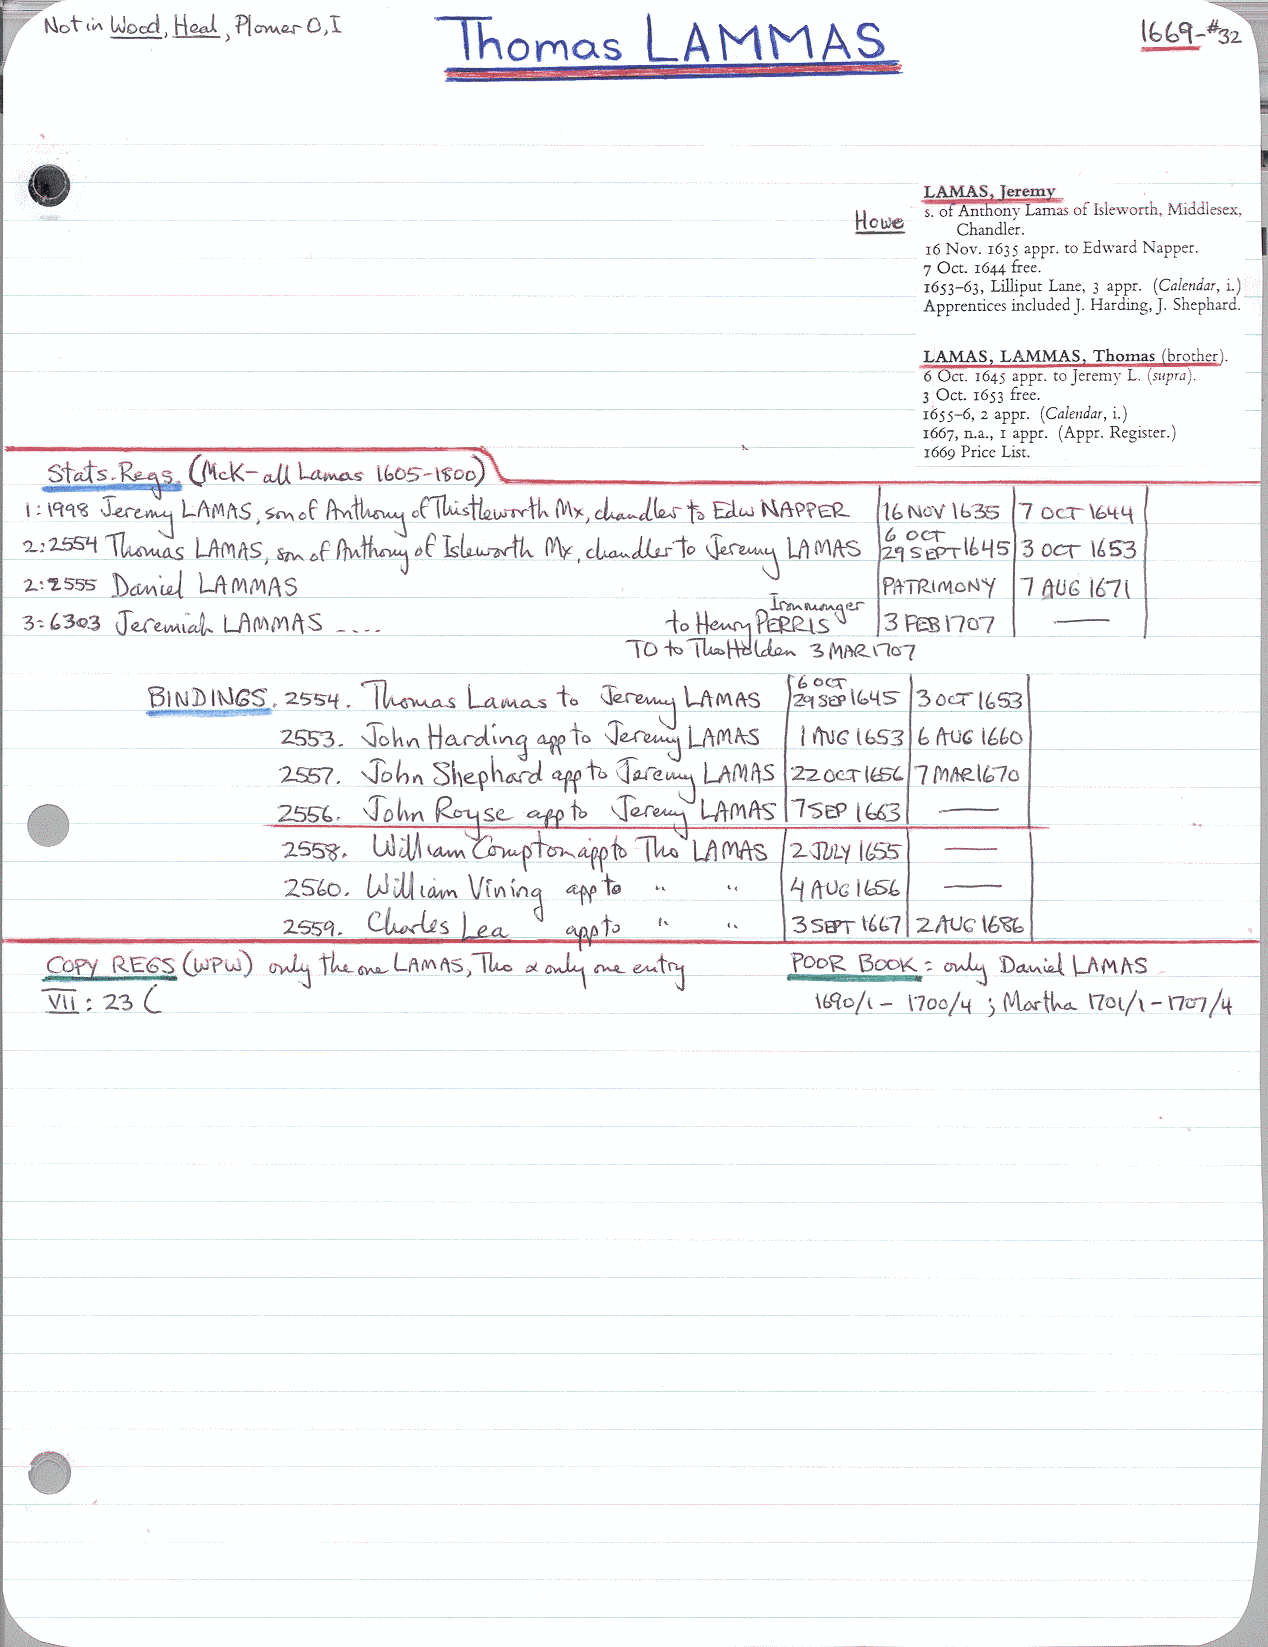 Not in Wood, Heal, Plomer O, I
Thomas LAMMAS
1669-#32
Howe
LAMAS, Jeremy
s. of Anthony Lamas of Isleworth, Middlesex,
Chandler.
16 Nov. 1635 appr. to Edward Napper.
7 Oct. 1644 free.
1653–63, Lilliput Lane, 3 appr. (Calendar, i.)
Apprentices included J. Harding, J. Shephard.
LAMAS, LAMMAS, Thomas (brother).
6 Oct. 1645 appr. to Jeremy L. (supra).
3 Oct. 1653 free.
1655–6, 2 appr. (Calendar, i.)
1667, n.a., 1 appr. (Appr. Register.)
1669 Price List.
Stats. Regs. (McK - all Lamas 1605-1800)
1:1998 Jeremy LAMAS, son of Anthony of Thistleworth Mx, chandler to Edw NAPPER 16 NOV 1635 7 OCT 1644
2:2554 Thomas LAMAS, son of Anthony of Isleworth Mx, chandler to Jeremy LAMAS 6 OCT 29 SEPT 1645 3 OCT 1653
2:2555 Daniel LAMMAS PATRIMONY 7 AUG 1671
3:6303 Jeremiah LAMMAS .... to Henry PERRIS Ironmonger 3 FEB 1707 —
TO to Tho Holden 3 MAR 1707
BINDINGS. 2554. Thomas Lamas to Jeremy LAMAS 6 OCT 29 SEP 1645 3 OCT 1653
2553. John Harding app to Jeremy LAMAS 1 AUG 1653 6 AUG 1660
2557. John Shephard app to Jeremy LAMAS 22 OCT 1656 7 MAR 1670
2556. John Royse app to Jeremy LAMAS 7 SEP 1663 —
2558. William Compton app to Tho LAMAS 2 JULY 1655 —
2560. William Vining app to " " 4 AUG 1656 —
2559. Charles Lea app to " " 3 SEPT 1667 2 AUG 1686
COPY REGS (WPW) only the one LAMAS, Tho & only one entry
VII : 23 (
POOR BOOK : only Daniel LAMAS
1690/1 - 1700/4 ; Martha 1701/1 - 1707/4